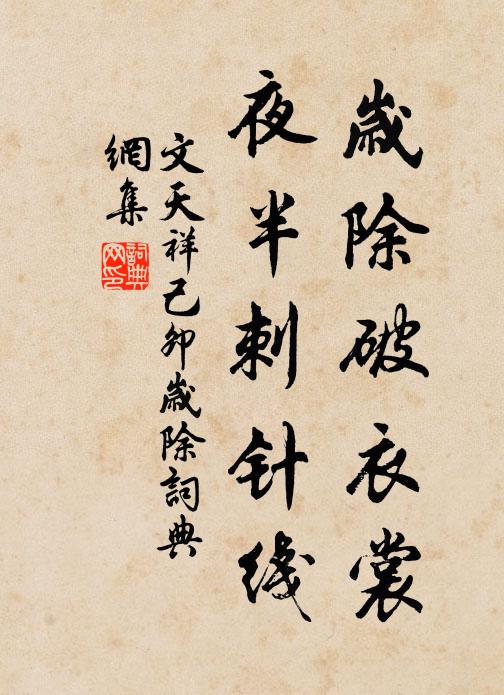 歲除破衣裳
夜半刺针线
文天祥己卯歲除詞典
網集
詞典
网印